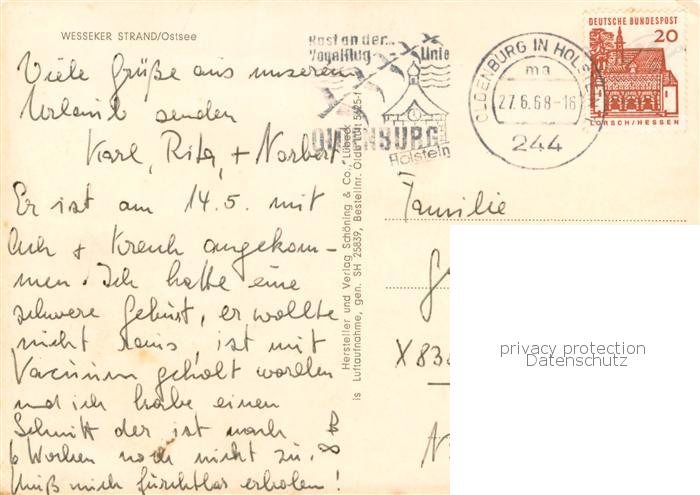 WESSEKER STRAND/Ostsee
Viele Grüße aus unserem
Urlaub senden
Karl, Rita, + Norbert
Er ist am 14.5. mit
Ach + Krach angekom-
men. Ich hatte eine
schwere Geburt, er wollte
nicht raus, ist mit
Vacuum geholt worden
und ich habe einen
Schnitt der ist nach
6 Wochen noch nicht zu.
Muß mich furchtbar erholen!
Hersteller und Verlag Schöning & Co., Lübeck
is Luftaufnahme, gen. SH 25839, Bestellnr. Oldb Luft 5625-1
Rast an der...
Vogelflug-Linie
OLDENBURG
Holstein
OLDENBURG IN HOLST
ma
27.6.68-16
244
DEUTSCHE BUNDESPOST
20
LORSCH/HESSEN
Familie
X 83
privacy protection
Datenschutz